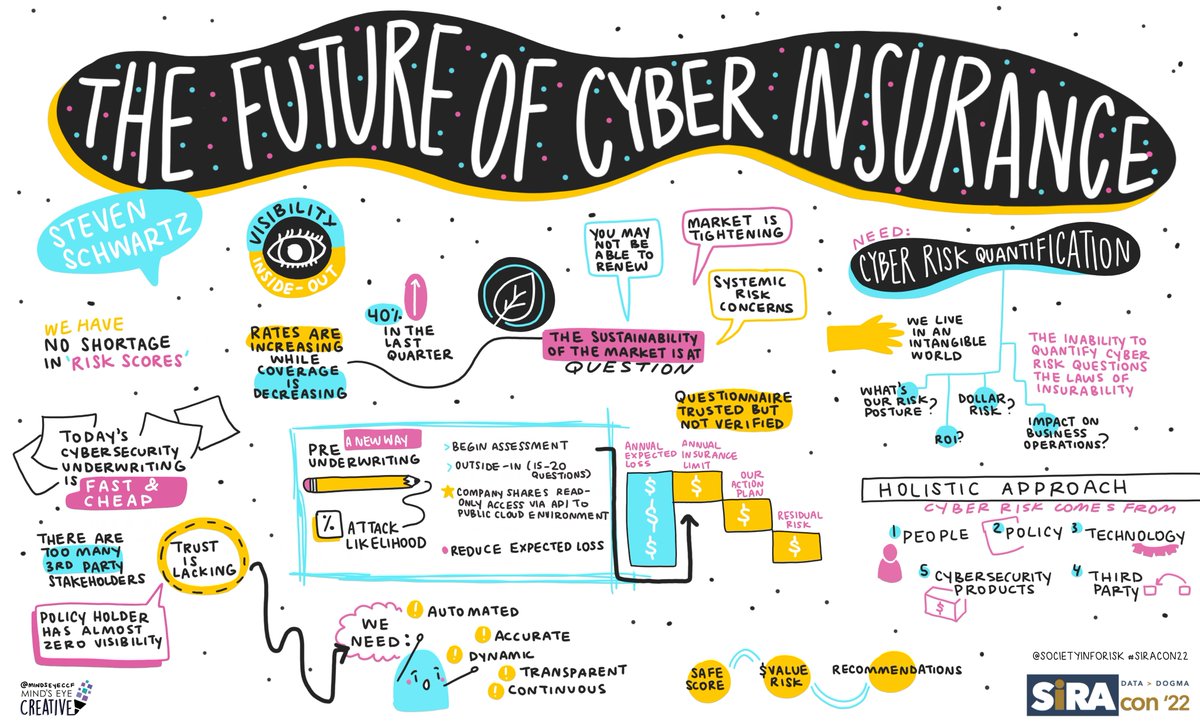 THE FUTURE OF CYBER INSURANCE
STEVEN
SCHWARTZ
VISIBILITY
INSIDE-OUT
WE HAVE
NO SHORTAGE
IN 'RISK SCORES'
RATES ARE
INCREASING
WHILE
COVERAGE
IS
DECREASING
40%
IN THE
LAST
QUARTER
YOU MAY
NOT BE
ABLE TO
RENEW
MARKET IS
TIGHTENING
SYSTEMIC
RISK
CONCERNS
THE SUSTAINABILITY
OF THE MARKET IS AT
QUESTION
NEED:
CYBER RISK QUANTIFICATION
WE LIVE
IN AN
INTANGIBLE
WORLD
THE INABILITY TO
QUANTIFY CYBER
RISK QUESTIONS
THE LAWS OF
INSURABILITY
WHAT'S
OUR RISK
POSTURE?
ROI?
DOLLAR
RISK?
IMPACT ON
BUSINESS
OPERATIONS?
TODAY'S
CYBERSECURITY
UNDERWRITING
IS FAST &
CHEAP
THERE ARE
TOO MANY
3RD PARTY
STAKEHOLDERS
TRUST
IS
LACKING
POLICY HOLDER
HAS ALMOST
ZERO VISIBILITY
PRE A NEW WAY
UNDERWRITING
% ATTACK
LIKELIHOOD
> BEGIN ASSESSMENT
> OUTSIDE-IN (15-20
QUESTIONS)
COMPANY SHARES READ-
ONLY ACCESS VIA API TO
PUBLIC CLOUD ENVIRONMENT
REDUCE EXPECTED LOSS
QUESTIONNAIRE
TRUSTED BUT
NOT VERIFIED
ANNUAL
EXPECTED
LOSS
$
$
$
$
ANNUAL
INSURANCE
LIMIT
$
OUR
ACTION
PLAN
$
RESIDUAL
RISK
$
WE
NEED:
! AUTOMATED
! ACCURATE
! DYNAMIC
! TRANSPARENT
! CONTINUOUS
HOLISTIC APPROACH
CYBER RISK COMES FROM
1 PEOPLE
2 POLICY
3 TECHNOLOGY
5 CYBERSECURITY
PRODUCTS
$
4 THIRD
PARTY
SAFE
SCORE
$VALUE
RISK
RECOMMENDATIONS
@MINDSEYECCF
MIND'S EYE
CREATIVE
@SOCIETYINFORISK #SIRACON22
SiRA
DATA > DOGMA
con '22